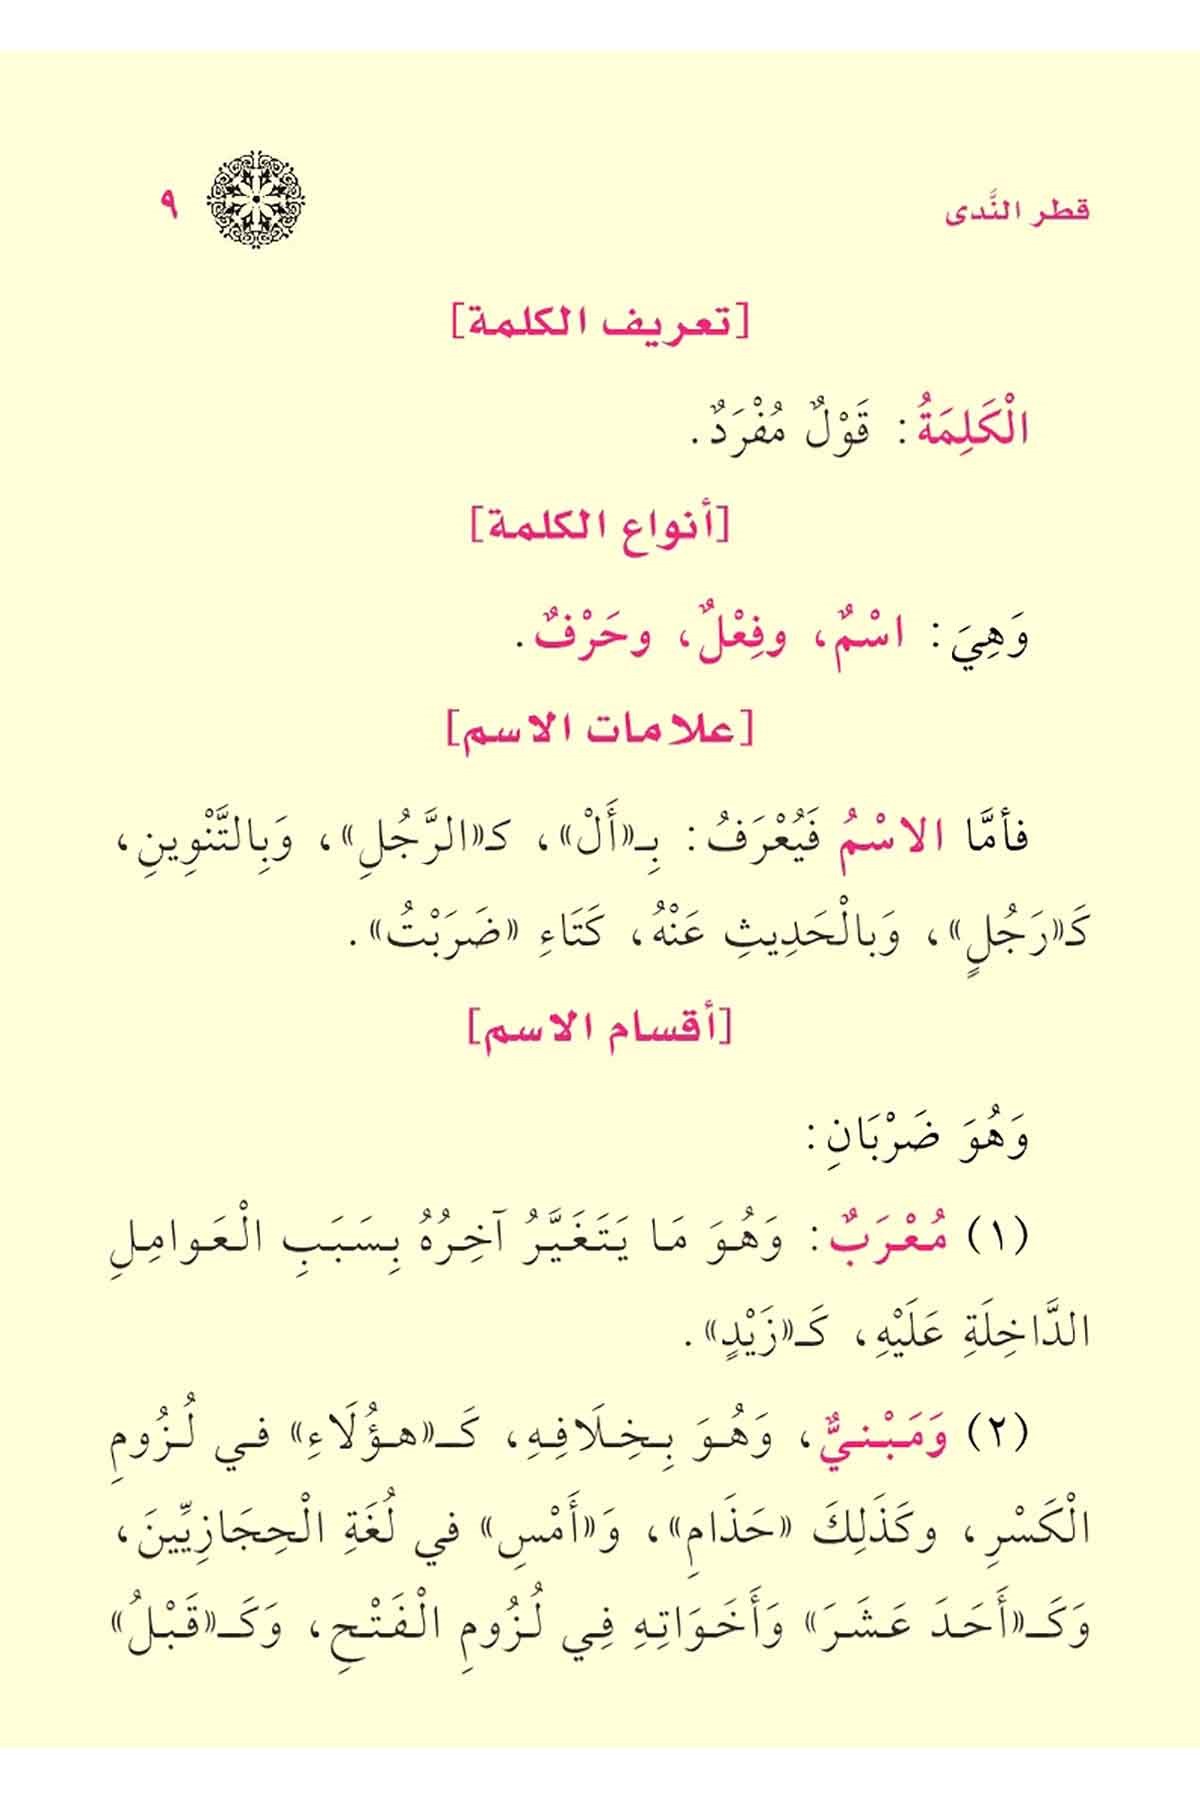 قطر النَّدى ٩
[تعريف الكلمة]
الْكَلِمَةُ: قَوْلٌ مُفْرَدٌ.
[أنواع الكلمة]
وَهِيَ: اسْمٌ، وفِعْلٌ، وحَرْفٌ.
[علامات الاسم]
فأمَّا الاسْمُ فَيُعْرَفُ: بِـ«أَلْ»، كـ«الرَّجُلِ»، وَبِالتَّنْوِينِ،
كَـ«رَجُلٍ»، وَبالْحَدِيثِ عَنْهُ، كَتَاءِ «ضَرَبْتُ».
[أقسام الاسم]
وَهُوَ ضَرْبَانِ:
(١) مُعْرَبٌ: وَهُوَ مَا يَتَغَيَّرُ آخِرُهُ بِسَبَبِ الْعَوامِلِ
الدَّاخِلَةِ عَلَيْهِ، كَـ«زَيْدٍ».
(٢) وَمَبْنيٌّ، وَهُوَ بِخِلَافِهِ، كَـ«هؤُلَاءِ» في لُزُومِ
الْكَسْرِ، وكَذَلِكَ «حَذَامِ»، وَ«أَمْسِ» في لُغَةِ الْحِجَازِيِّينَ،
وَكَـ«أَحَدَ عَشَرَ» وَأَخَوَاتِهِ فِي لُزُومِ الْفَتْحِ، وَكَـ«قَبْلُ»